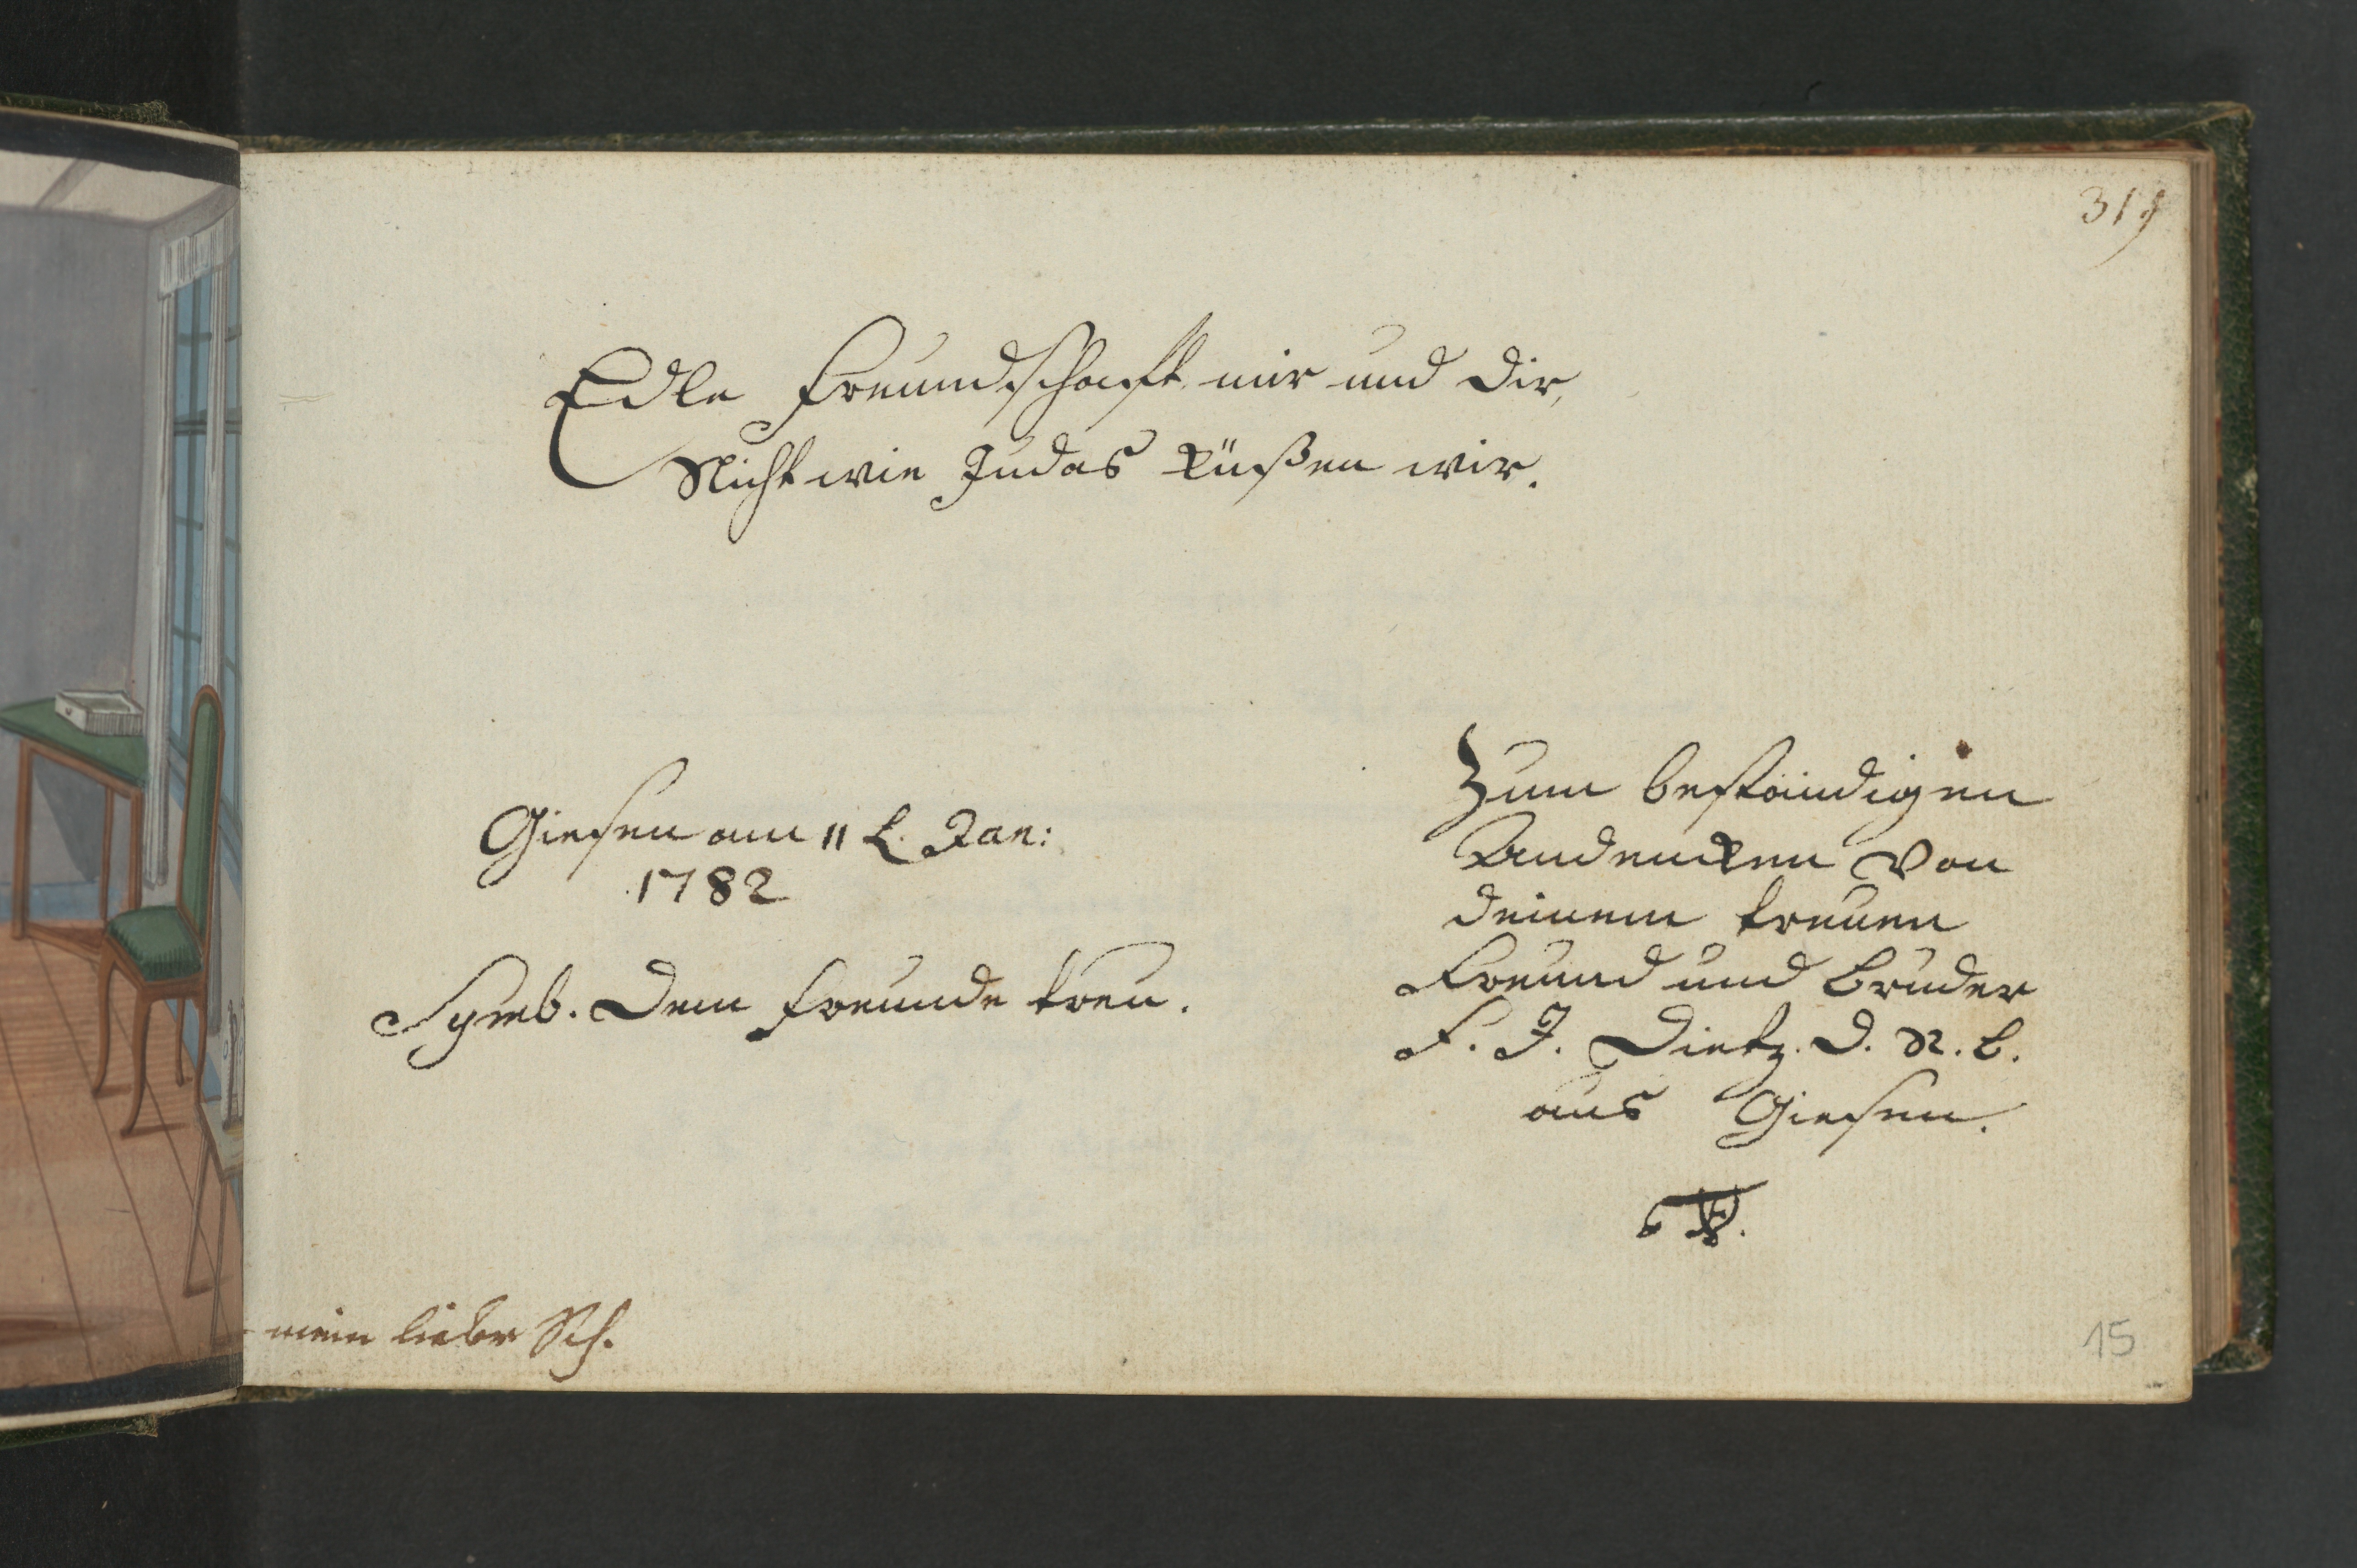 319
Edle Freundschaft mir und dir,
Nicht wie Judas küßen wir.
Giesen am 11 t. Jan:
1782
Symb. Dem Freunde treu.
Zum beständigen
Andencken von
deinem treuen
Freund und Bruder
F. J. Dietz. D. R. B.
aus Giesen.
mein lieber Sch.
15